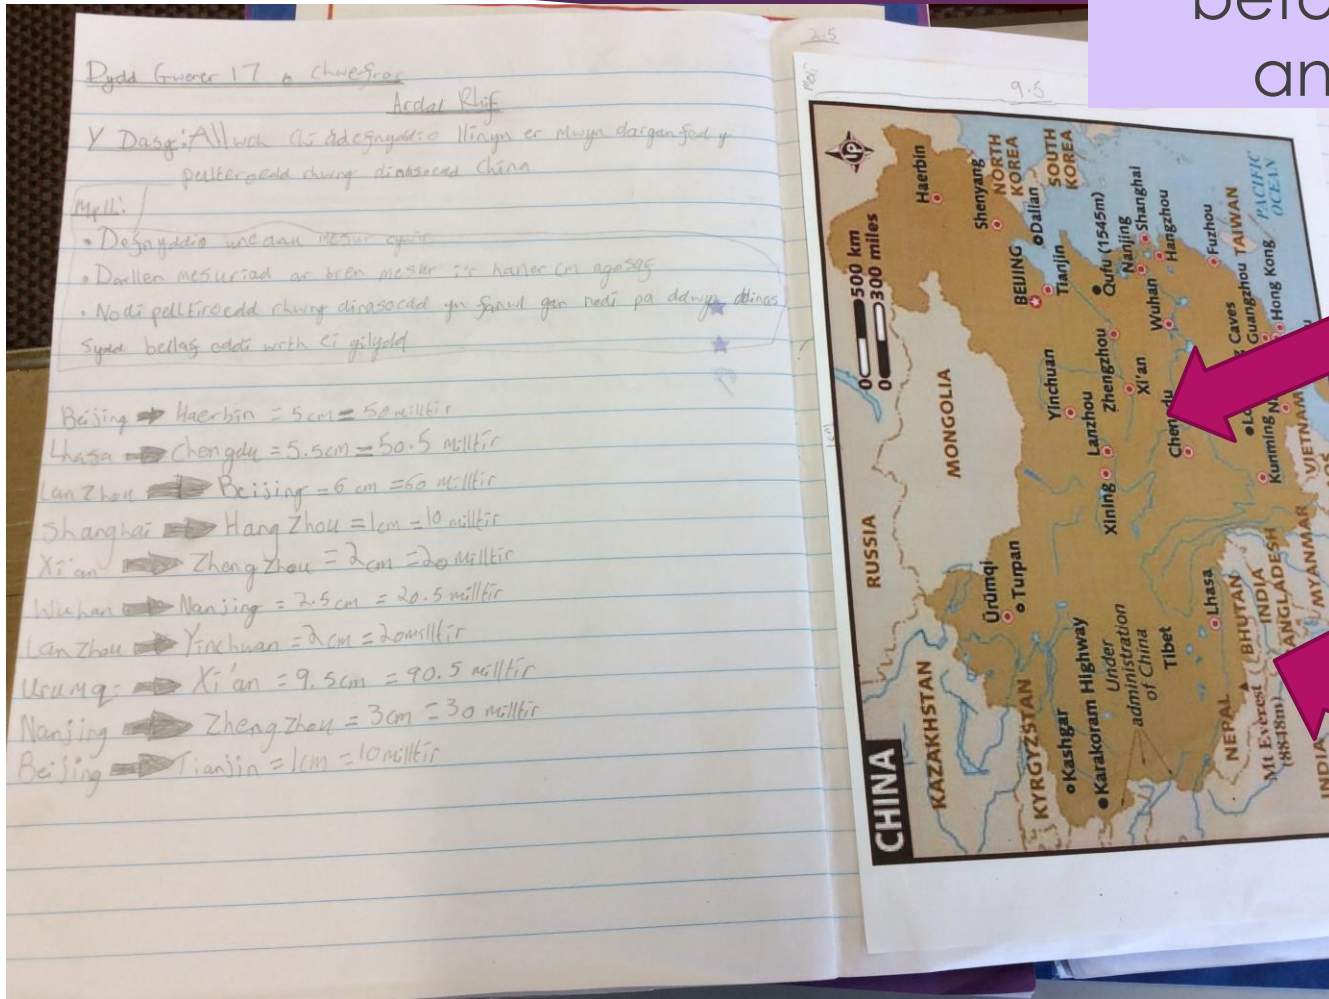 befo
an
Dydd Gwener 17 o Chwefror
Ardal Rhif
Y Dasg: Allwch chi ddefnyddio llinyn er mwyn darganfod y
pellteroedd rhwng dinasoedd China
Mpll:
• Defnyddio unedau mesur cywir
• Darllen mesuriad ar bren mesur i'r haner cm agosaf
• Nodi pelltiroedd rhwng dinasoedd yn fanwl gan nodi pa ddwy ddinas
sydd bellaf oddi wrth ei gilydd
Beijing Haerbin = 5cm = 50 milltir
Lhasa Chengdu = 5.5cm = 50.5 milltir
Lan Zhou Beijing = 6 cm = 60 milltir
Shanghai Hang Zhou = 1cm = 10 milltir
Xi'an Zheng Zhou = 2cm = 20 milltir
Wuhan Nanjing = 2.5cm = 20.5 milltir
Lan Zhou Yinchuan = 2cm = 20 milltir
Urumqi Xi'an = 9.5cm = 90.5 milltir
Nanjing Zheng Zhou = 3cm = 30 milltir
Beijing Tianjin = 1cm = 10 milltir
2.5
9.5
1cm
CHINA
0 500 km
0 300 miles
RUSSIA
MONGOLIA
KAZAKHSTAN
KYRGYZSTAN
NORTH
KOREA
SOUTH
KOREA
Haerbin
Shenyang
Dalian
BEIJING
Tianjin
Qufu (1545m)
Nanjing
Shanghai
Hangzhou
Wuhan
Fuzhou
TAIWAN
PACIFIC
OCEAN
Yinchuan
Lanzhou
Zhengzhou
Xi'an
Xining
Caves
Guangzhou
Hong Kong
Kunming
VIETNAM
Ürümqi
Turpan
Kashgar
Karakoram Highway
Under
administration
of China
Tibet
Lhasa
NEPAL
BHUTAN
INDIA
MYANMAR
Mt Everest
(8848m)
INDIA